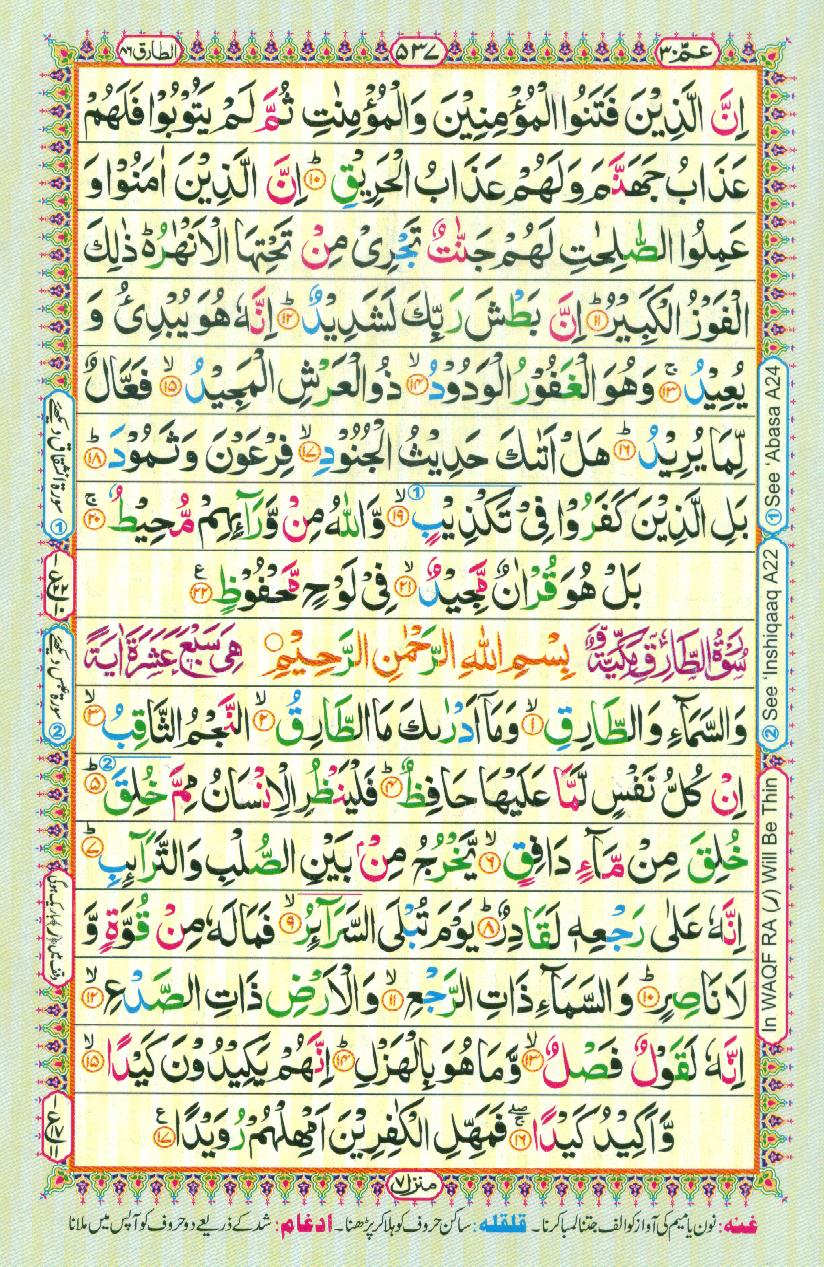 عمّ ٣٠
٥٣٧
الطارق ٨٦
اِنَّ الَّذِيْنَ فَتَنُوا الْمُؤْمِنِيْنَ وَالْمُؤْمِنٰتِ ثُمَّ لَمْ يَتُوْبُوْا فَلَهُمْ
عَذَابُ جَهَنَّمَ وَلَهُمْ عَذَابُ الْحَرِيْقِ ؕ‏ ﴿۱۰﴾ اِنَّ الَّذِيْنَ اٰمَنُوْا وَ
عَمِلُوا الصّٰلِحٰتِ لَهُمْ جَنّٰتٌ تَجْرِىْ مِنْ تَحْتِهَا الْاَنْهٰرُ ؕ ذٰلِكَ
الْفَوْزُ الْكَبِيْرُ ؕ‏ ﴿۱۱﴾ اِنَّ بَطْشَ رَبِّكَ لَشَدِيْدٌ ؕ‏ ﴿۱۲﴾ اِنَّهٗ هُوَ يُبْدِئُ وَ
يُعِيْدُ ۚ‏ ﴿۱۳﴾ وَهُوَ الْغَفُوْرُ الْوَدُوْدُ ۙ‏ ﴿۱۴﴾ ذُو الْعَرْشِ الْمَجِيْدُ ۙ‏ ﴿۱۵﴾ فَعَّالٌ
لِّمَا يُرِيْدُ ؕ‏ ﴿۱۶﴾ هَلْ اَتٰٮكَ حَدِيْثُ الْجُنُوْدِ ۙ‏ ﴿۱۷﴾ فِرْعَوْنَ وَثَمُوْدَ ؕ‏ ﴿۱۸﴾
بَلِ الَّذِيْنَ كَفَرُوْا فِىْ تَكْذِيْبٍ ① ۙ‏ ﴿۱۹﴾ وَّاللّٰهُ مِنْ وَّرَآئِهِمْ مُّحِيْطٌ ۚ‏ ﴿۲۰﴾
بَلْ هُوَ قُرْاٰنٌ مَّجِيْدٌ ۙ‏ ﴿۲۱﴾ فِىْ لَوْحٍ مَّحْفُوْظٍ ﴿۲۲﴾ ع
سُوْرَةُ الطَّارِقِ مَكِّيَّةٌ وَّ بِسْمِ اللّٰهِ الرَّحْمٰنِ الرَّحِيْمِ هِىَ سَبْعَ عَشْرَةَ اٰيَةً
وَالسَّمَآءِ وَالطَّارِقِ ۙ‏ ﴿۱﴾ وَمَاۤ اَدْرٰٮكَ مَا الطَّارِقُ ۙ‏ ﴿۲﴾ النَّجْمُ الثَّاقِبُ ۙ‏ ﴿۳﴾
اِنْ كُلُّ نَفْسٍ لَّمَّا عَلَيْهَا حَافِظٌ ؕ‏ ﴿۴﴾ فَلْيَنْظُرِ الْاِنْسَانُ مِمَّ خُلِقَ ② ؕ‏ ﴿۵﴾
خُلِقَ مِنْ مَّآءٍ دَافِقٍ ۙ‏ ﴿۶﴾ يَّخْرُجُ مِنْۢ بَيْنِ الصُّلْبِ وَالتَّرَآئِبِ ؕ‏ ﴿۷﴾
اِنَّهٗ عَلٰى رَجْعِهٖ لَقَادِرٌ ؕ‏ ﴿۸﴾ يَوْمَ تُبْلَى السَّرَآئِرُ ۙ‏ ﴿۹﴾ فَمَا لَهٗ مِنْ قُوَّةٍ وَّ
لَا نَاصِرٍ ؕ‏ ﴿۱۰﴾ وَالسَّمَآءِ ذَاتِ الرَّجْعِ ۙ‏ ﴿۱۱﴾ وَالْاَرْضِ ذَاتِ الصَّدْعِ ۙ‏ ﴿۱۲﴾
اِنَّهٗ لَقَوْلٌ فَصْلٌ ۙ‏ ﴿۱۳﴾ وَّمَا هُوَ بِالْهَزْلِ ؕ‏ ﴿۱۴﴾ اِنَّهُمْ يَكِيْدُوْنَ كَيْدًا ۙ‏ ﴿۱۵﴾
وَّاَكِيْدُ كَيْدًا ۚۖ‏ ﴿۱۶﴾ فَمَهِّلِ الْكٰفِرِيْنَ اَمْهِلْهُمْ رُوَيْدًا ﴿۱۷﴾ ع
① See 'Abasa A24
② See 'Inshiqaaq A22
In WAQF RA (ر) Will Be Thin
① سورۃ انشقاق دیکھئے
منزل ٧
غنہ: نون یا میم کی آواز کو الف جتنا لمبا کرنا۔ قلقلہ: ساکن حروف کو ہلا کر پڑھنا۔ ادغام: شد کے ذریعے دو حروف کو آپس میں ملانا